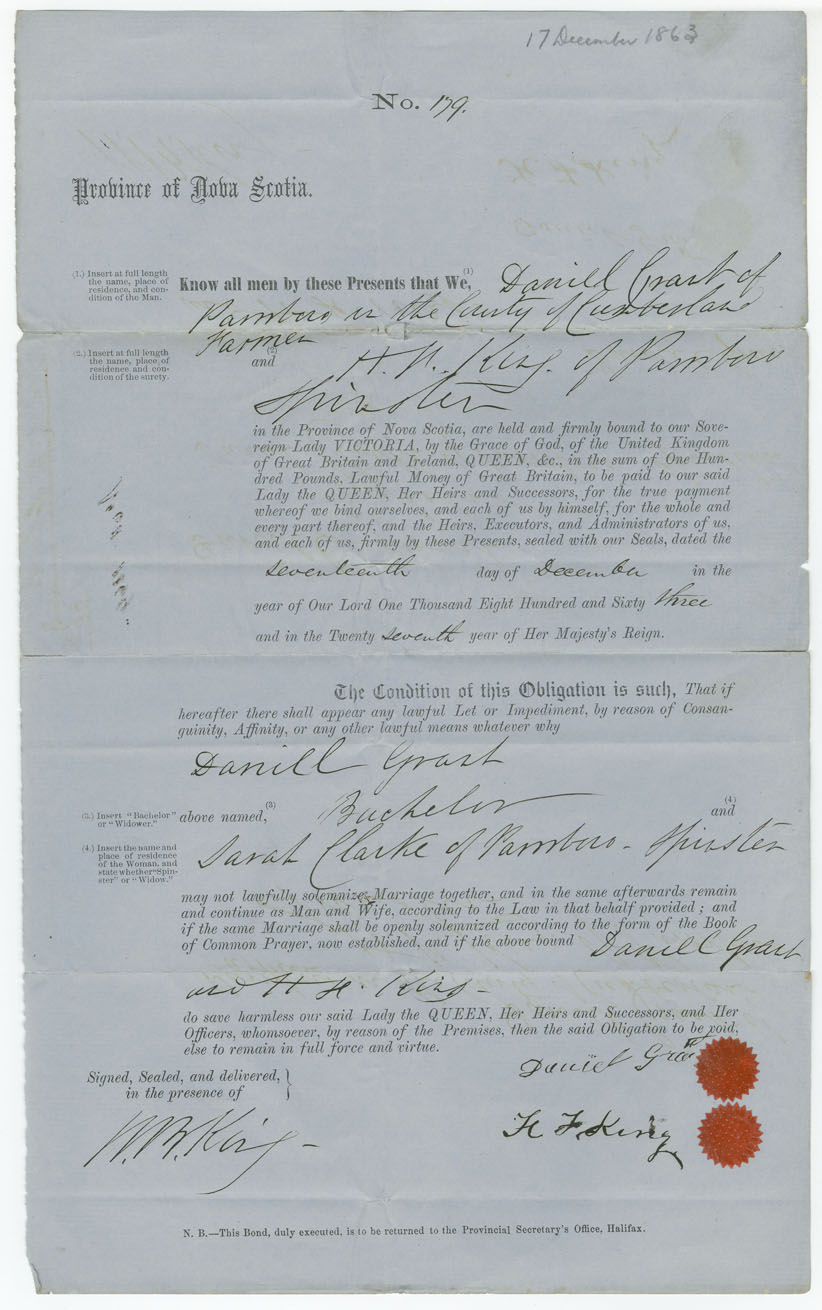 17 December 1863
No. 179.
Province of Nova Scotia.
(1.) Insert at full length
the name, place of
residence, and con-
dition of the Man.
Know all men by these Presents that We, (1) Daniell Grant of
Parrsboro in the County of Cumberland
Farmer
(2.) Insert at full length
the name, place of
residence and con-
dition of the surety.
(2)
and H. H. King. of Parrsboro
Spinster
in the Province of Nova Scotia, are held and firmly bound to our Sove-
reign Lady VICTORIA, by the Grace of God, of the United Kingdom
of Great Britain and Ireland, QUEEN, &c., in the sum of One Hun-
dred Pounds, Lawful Money of Great Britain, to be paid to our said
Lady the QUEEN, Her Heirs and Successors, for the true payment
whereof we bind ourselves, and each of us by himself, for the whole and
every part thereof, and the Heirs, Executors, and Administrators of us,
and each of us, firmly by these Presents, sealed with our Seals, dated the
seventeenth day of December in the
year of Our Lord One Thousand Eight Hundred and Sixty three
and in the Twenty seventh year of Her Majesty's Reign.
The Condition of this Obligation is such, That if
hereafter there shall appear any lawful Let or Impediment, by reason of Consan-
guinity, Affinity, or any other lawful means whatever why
Daniell Grant
(3.) Insert "Bachelor"
or "Widower."
above named, (3) Bachelor and (4)
(4.) Insert the name and
place of residence
of the Woman, and
state whether "Spin-
ster" or "Widow."
Sarah Clarke of Parrsboro - Spinster
may not lawfully solemnize Marriage together, and in the same afterwards remain
and continue as Man and Wife, according to the Law in that behalf provided; and
if the same Marriage shall be openly solemnized according to the form of the Book
of Common Prayer, now established, and if the above bound Daniell Grant
and H H. King -
do save harmless our said Lady the QUEEN, Her Heirs and Successors, and Her
Officers, whomsoever, by reason of the Premises, then the said Obligation to be void,
else to remain in full force and virtue.
Signed, Sealed, and delivered,
in the presence of
Daniel Grant
W. B. King -
H F. King
N. B.—This Bond, duly executed, is to be returned to the Provincial Secretary's Office, Halifax.